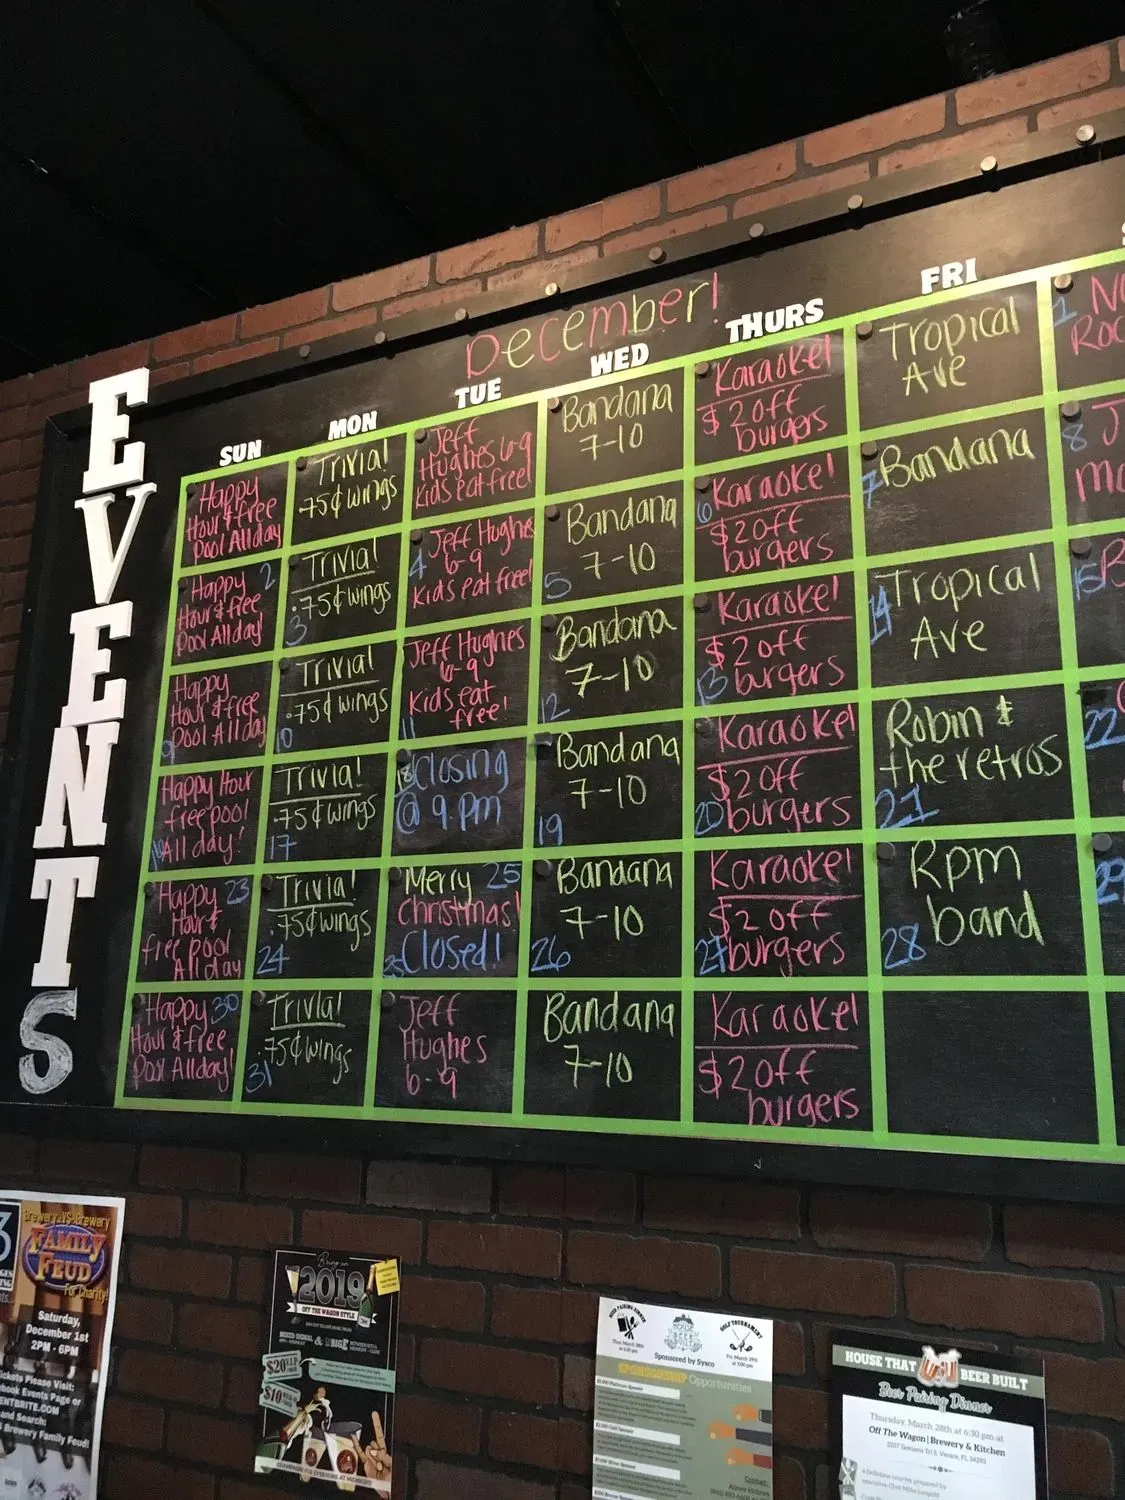 EVENTS
December!
SUN
MON
TUE
WED
THURS
FRI
Happy
Hour & free
Pool All day
Trivia!
.75¢ wings
Jeff
Hughes 6-9
Kids eat free!
Bandana
7-10
Karaoke!
$2 off
burgers
Tropical
Ave
1
Happy 2
Hour & free
Pool All day!
Trivia!
.75¢ wings
3
Jeff Hughes
6-9
4
Kids eat free!
Bandana
7-10
5
Karaoke!
6
$2 off
burgers
Bandana
7
8
Happy
Hour & free
Pool All day
9
Trivia!
.75¢ wings
10
Jeff Hughes
6-9
Kids eat
free!
11
Bandana
7-10
12
Karaoke!
$2 off
13 burgers
Tropical
14
Ave
15
Happy Hour
free pool
16 All day!
Trivia!
.75¢ wings
17
18 Closing
@ 9 pm
Bandana
7-10
19
Karaoke!
$2 off
20 burgers
Robin &
the retros
21
22
Happy 23
Hour &
free pool
All day
Trivia!
.75¢ wings
24
Merry 25
Christmas!
25 Closed!
Bandana
7-10
26
Karaoke!
$2 off
27 burgers
Rpm
band
28
29
Happy 30
Hour & free
Pool All day!
Trivia!
.75¢ wings
31
Jeff
Hughes
6-9
Bandana
7-10
Karaoke!
$2 off
burgers
Brewery-VS-Brewery
FAMILY
FEUD
For Charity!
Saturday,
December 1st
2PM - 6PM
Please Visit:
Events Page or
and Search:
Brewery Family Feud!
Ring in
2019
OFF THE WAGON STYLE
$20
$10
CHAMPAGNE FOR EVERYONE AT MIDNIGHT
BEER PAIRING DINNER
Thur. March 28th
at 6:30 pm
HOUSE
BEER
BUILT
GOLF TOURNAMENT
Fri. March 29th
at 1:00 pm
Sponsored by Sysco
SPONSORSHIP Opportunities
Contact:
HOUSE THAT BEER BUILT
Beer Pairing Dinner
Thursday, March 28th at 6:30 pm at
Off The Wagon | Brewery & Kitchen
2107 Tamiami Trl S, Venice, FL 34293